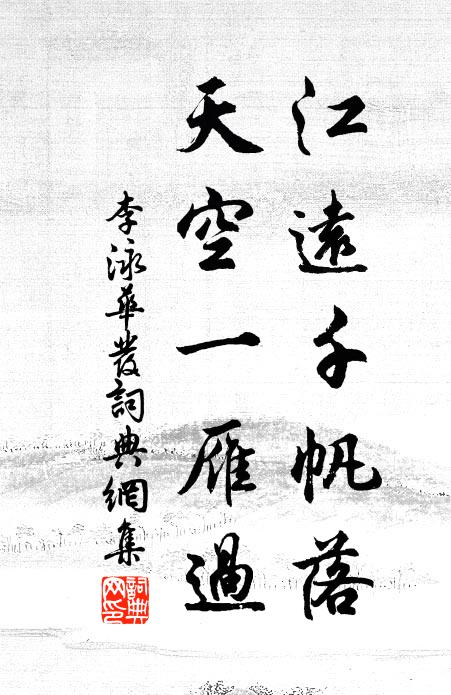 江遠千帆落
天空一雁過
李泳華發詞典網集
詞典
网印